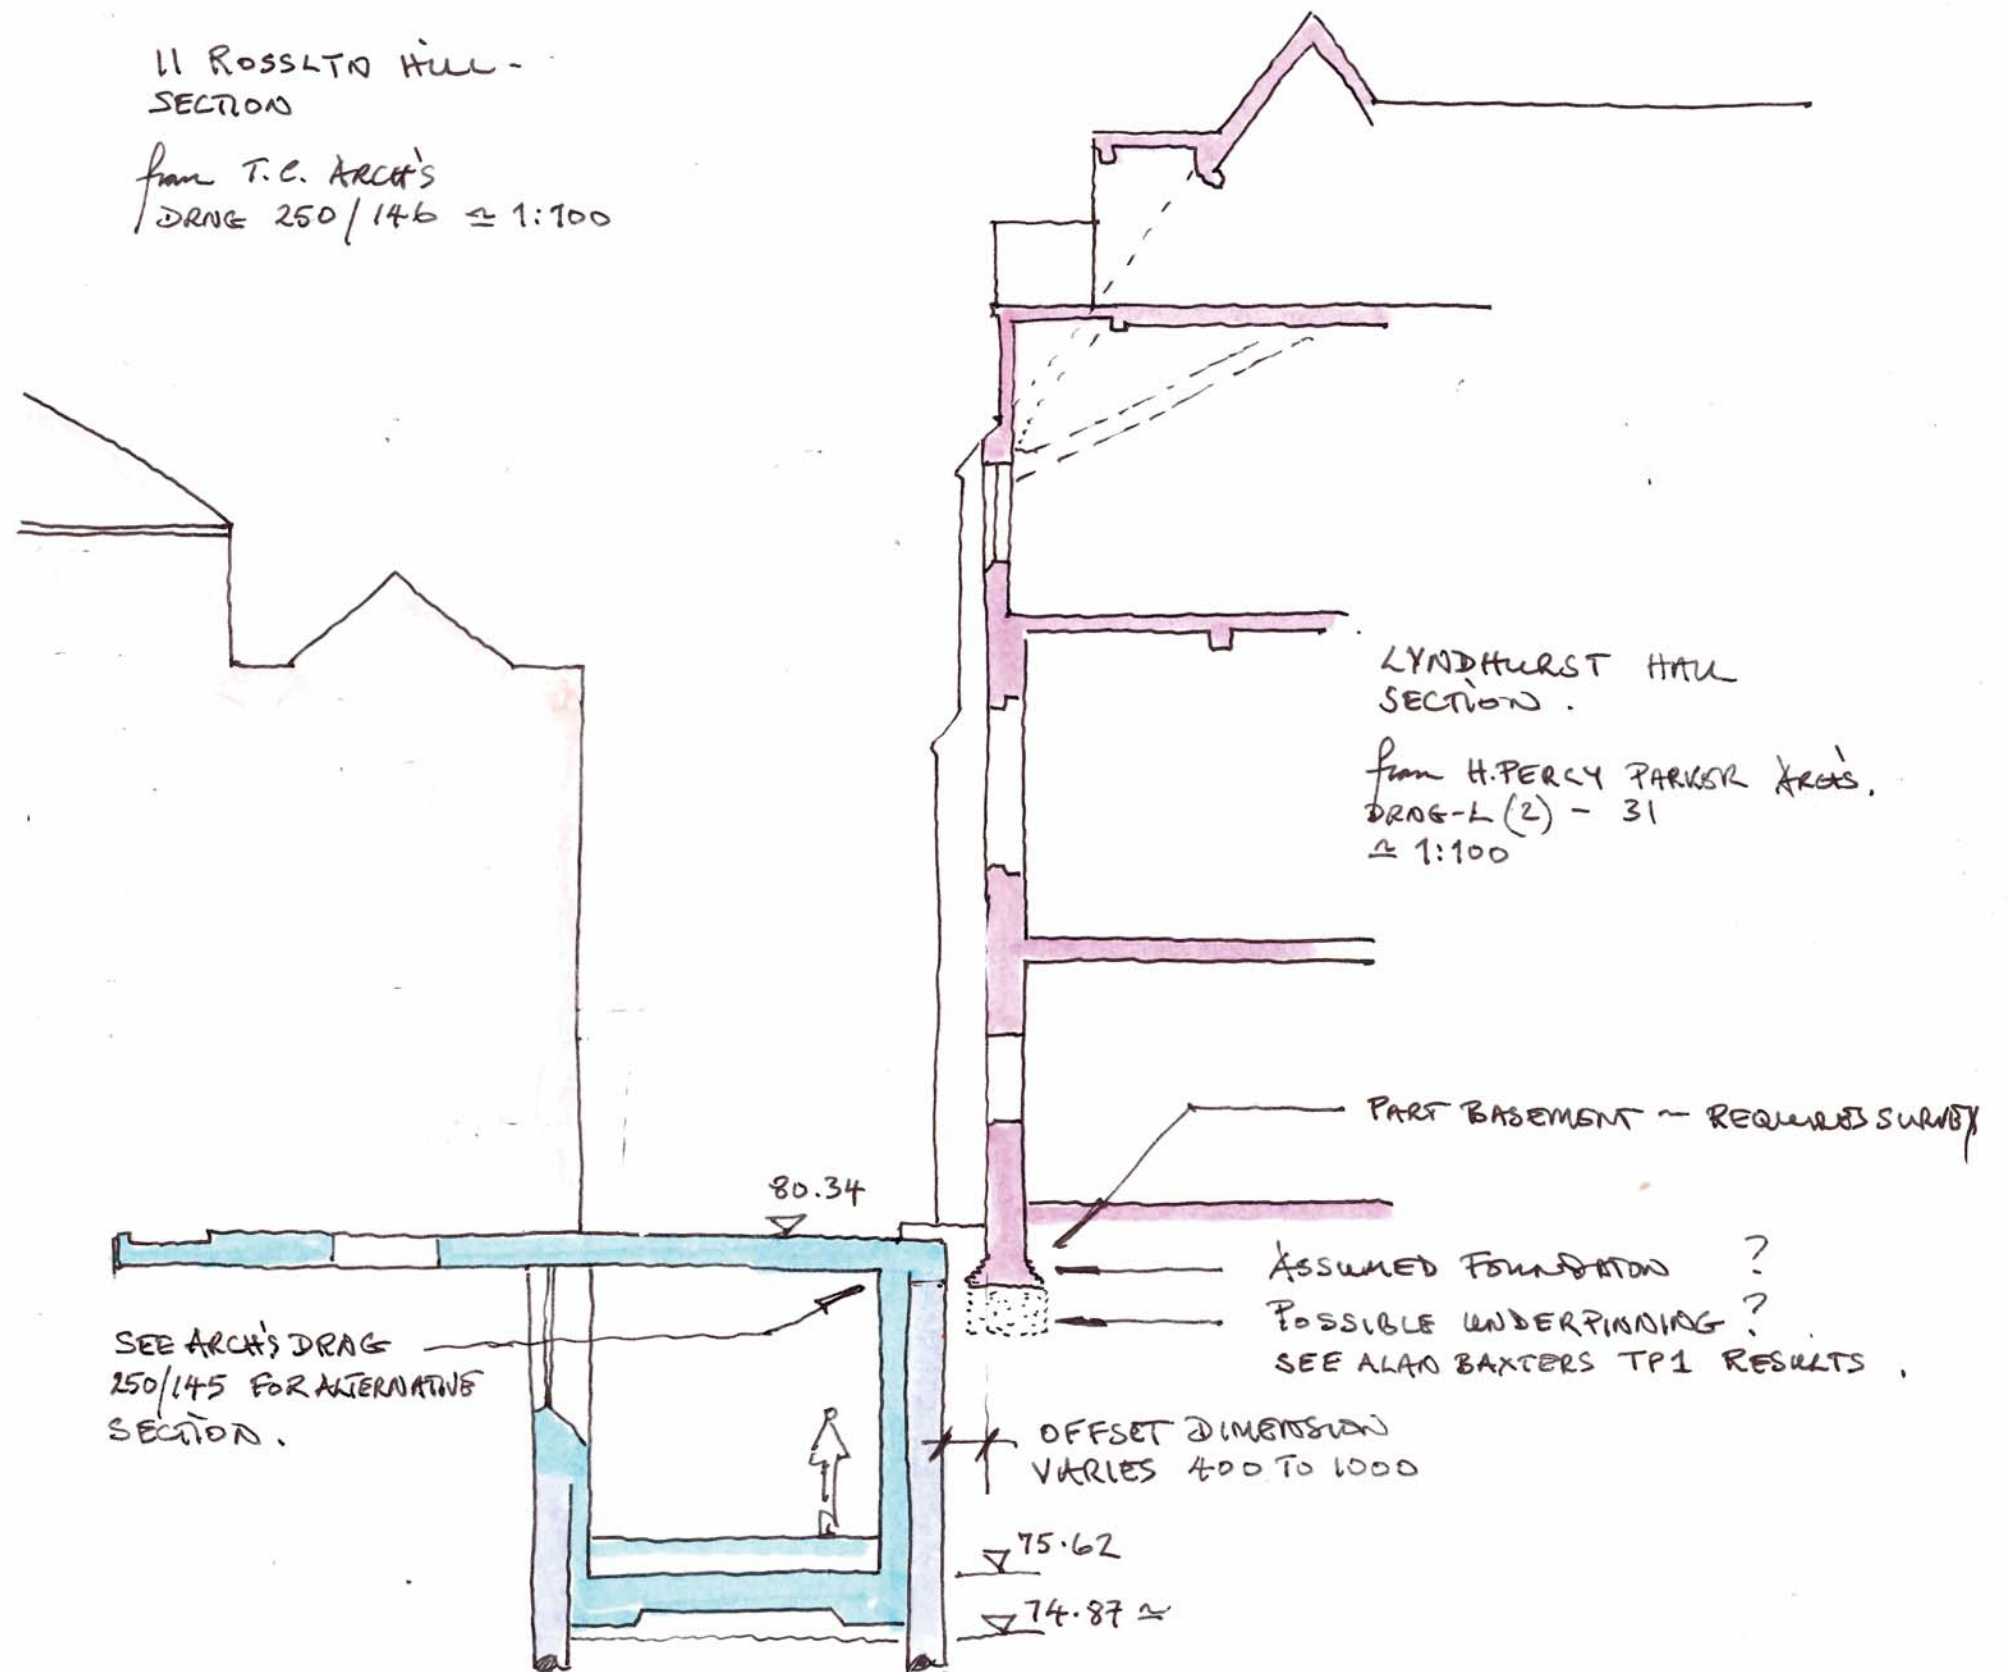 11 ROSSLYN HILL -
SECTION
from T.C. ARCH'S
DRNG 250/146 ≃ 1:100
LYNDHURST HALL
SECTION.
from H. PERCY PARKER ARCH'S.
DRNG-L(2) - 31
≃ 1:100
PART BASEMENT ~ REQUIRES SURVEY
80.34
ASSUMED FOUNDATON ?
POSSIBLE UNDERPINNING ?
SEE ALAN BAXTERS TP1 RESULTS.
SEE ARCH'S DRNG
250/145 FOR ALTERNATIVE
SECTION.
OFFSET DIMENSION
VARIES 400 TO 1000
75.62
74.87 ≃